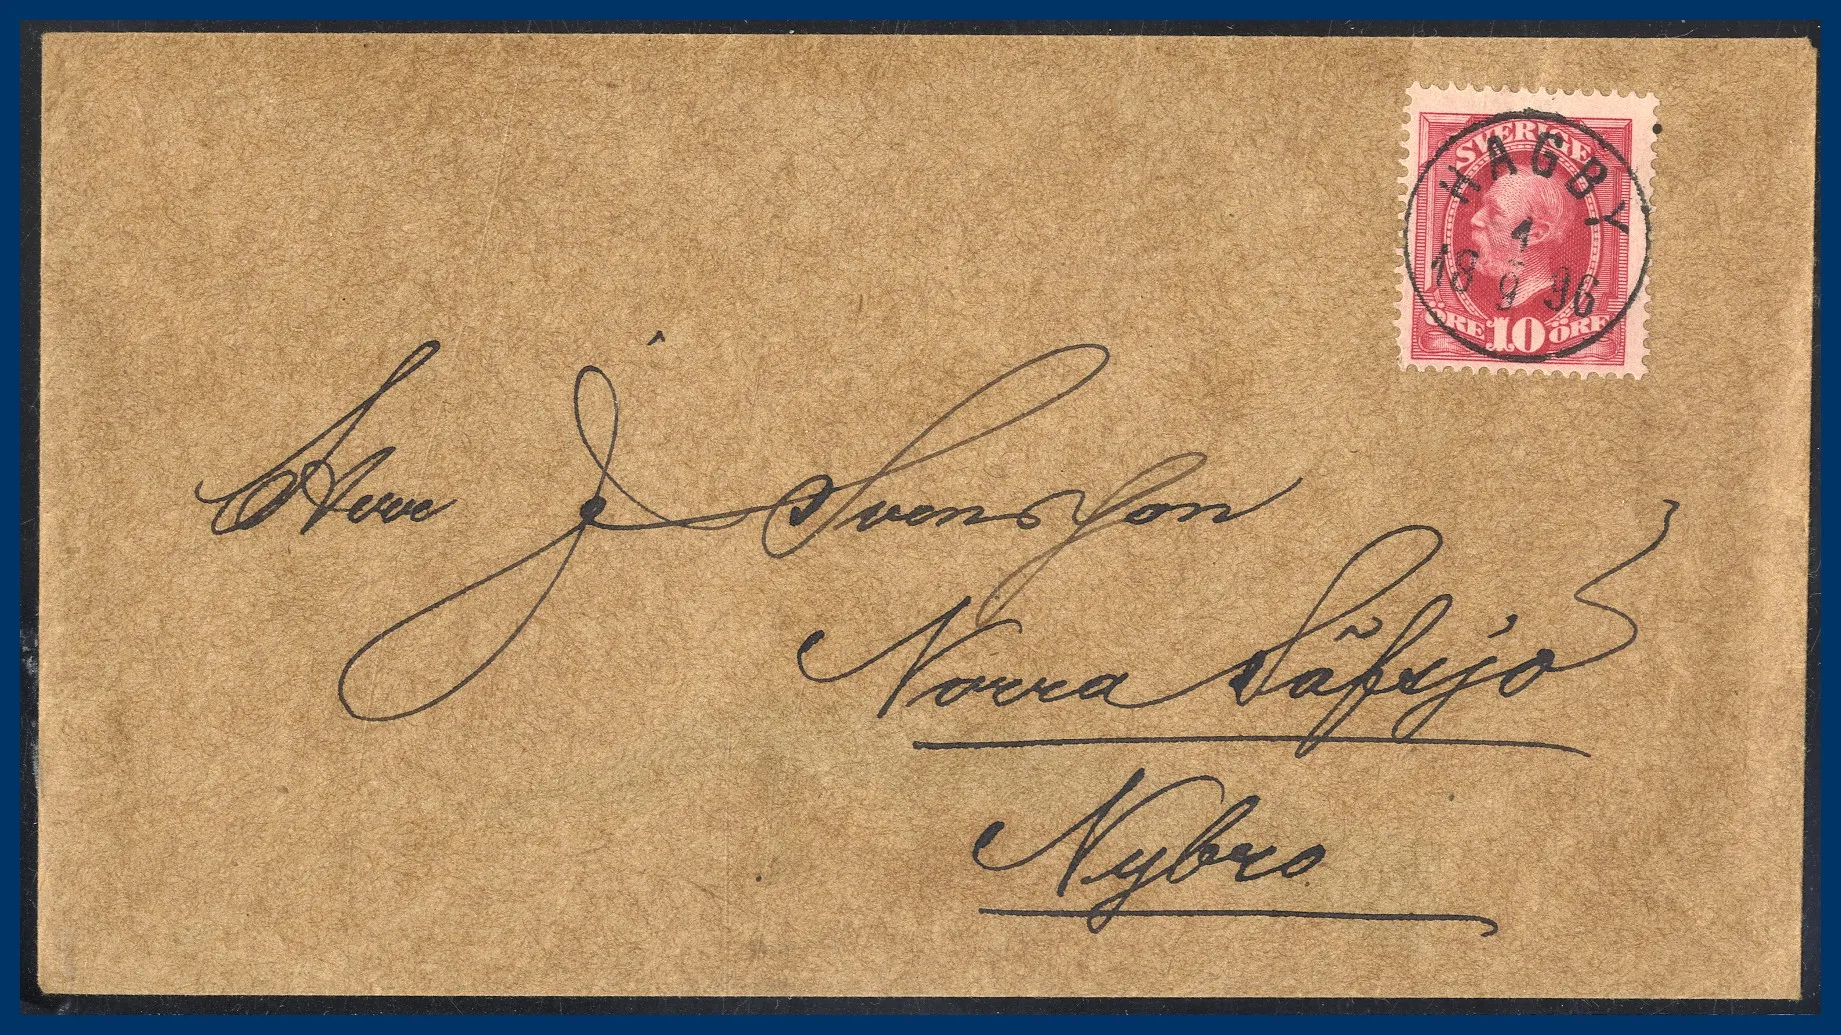 SVERIGE
HAGBY
4
18 9 96
ÖRE 10 ÖRE
Herr J Svensson
Norra Säfsjö
Nybro